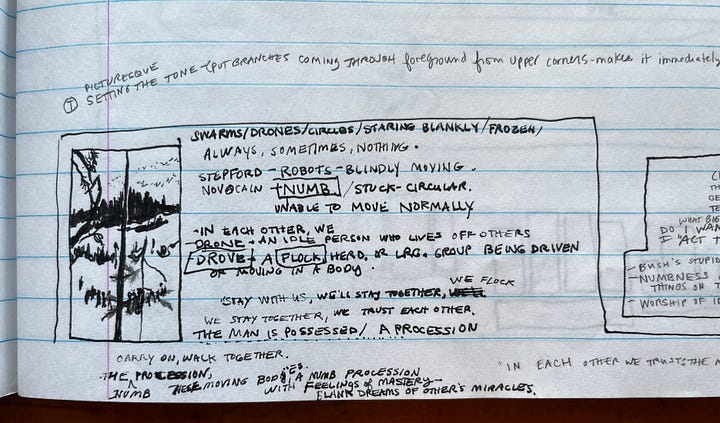 PICTURESQUE
① SETTING THE TONE - (PUT BRANCHES COMING THROUGH foreground from upper corners - makes it immediately
SWARMS/DRONES/CIRCLES/STARING BLANKLY/FROZEN/
ALWAYS, SOMETIMES, NOTHING.
STEPFORD - ROBOTS - BLINDLY MOVING.
NOVOCAIN - NUMB / STUCK - CIRCULAR.
UNABLE TO MOVE NORMALLY
- IN EACH OTHER, WE
DRONE - AN IDLE PERSON WHO LIVES OFF OTHERS
DROVE - A FLOCK, HERD, OR LRG. GROUP BEING DRIVEN
OR MOVING IN A BODY.
WE FLOCK
STAY WITH US, WE'LL STAY TOGETHER,
WE STAY TOGETHER, WE TRUST EACH OTHER.
THE MAN IS POSSESSED / A PROCESSION
CARRY ON, WALK TOGETHER.
THE PROCESSION, THESE MOVING BODIES, A NUMB PROCESSION
NUMB
WITH FEELINGS OF MASTERY -
BLANK DREAMS OF OTHER'S MIRACLES.
WHAT BIG
DO I WAN
I "ACT T
- BUSH'S STUPID
- NUMBNESS
THINGS ON T
- WORSHIP OF I
"IN EACH OTHER WE TRUST: THE M